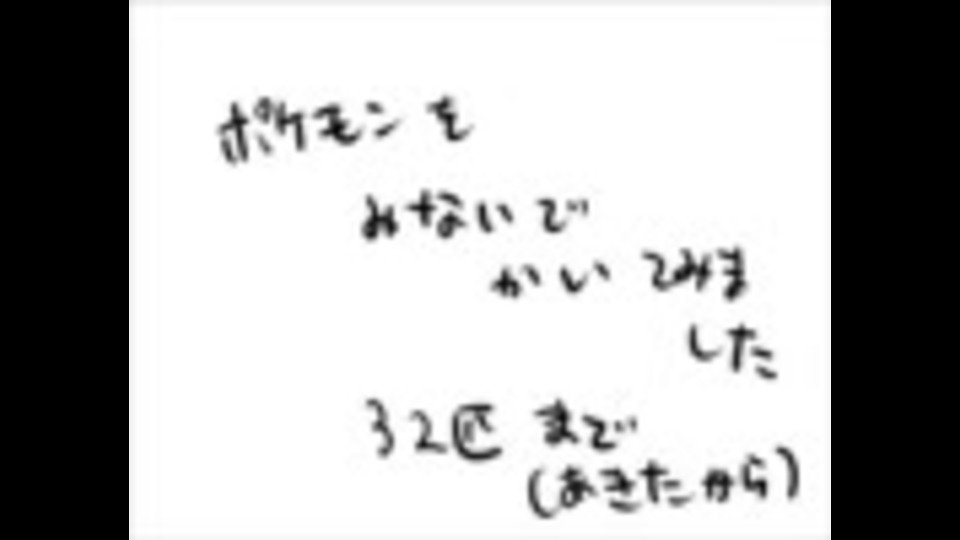 ポケモンを
みないで
かいてみま
した
32匹 まで
(あきたから)